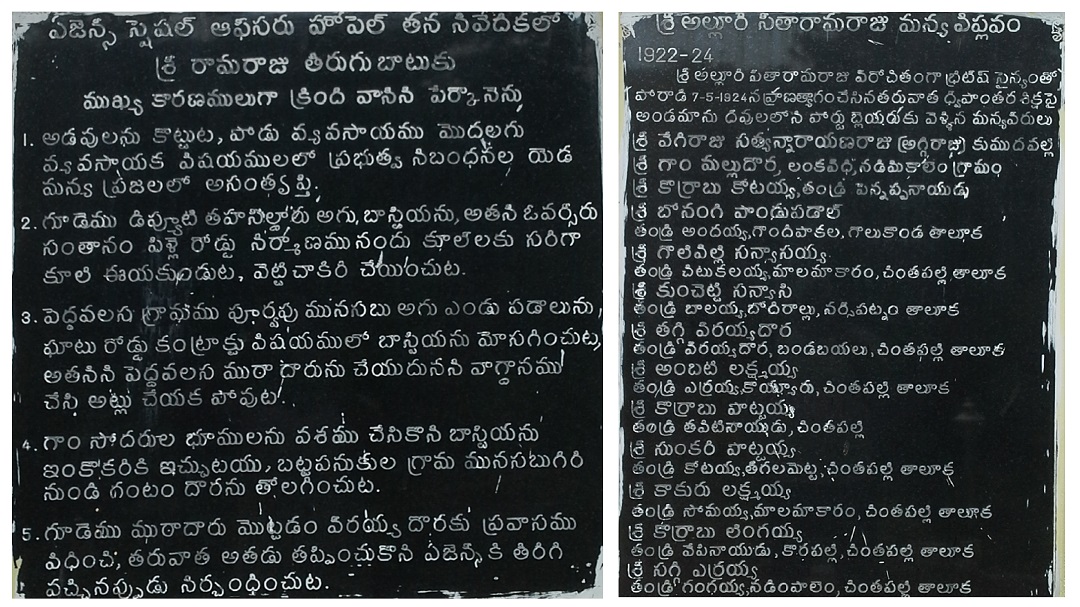 ఏజెన్సీ స్పెషల్ ఆఫీసరు హోపెల్ తన నివేదికలో
శ్రీ రామరాజు తిరుగుబాటుకు
ముఖ్య కారణములుగా క్రింది వానిని పేర్కొనెను
1. అడవులను కొట్టుట, పోడు వ్యవసాయము మొదలగు
వ్యవసాయక విషయములలో ప్రభుత్వ నిబంధనల యెడ
మన్య ప్రజలలో అసంతృప్తి.
2. గూడెము డిప్యూటి తహసిల్దారు అగు, బాస్టియను, అతని ఓవర్సీరు
సంతానం పిళ్లె రోడ్డు నిర్మాణమునందు కూలీలకు సరిగా
కూలి ఈయకుండుట, వెట్టిచాకిరి చేయించుట.
3. పెద్దవలస గ్రామము పూర్వపు మునసబు అగు ఎండు పడాలును,
ఘాటు రోడ్డు కంట్రాక్టు విషయములో బాస్టియను మోసగించుట,
అతనిని పెద్దవలస ముఠాదారును చేయుదునని వాగ్దానము
చేసి అట్లు చేయక పోవుట.
4. గాం సోదరుల భూములను వశము చేసికొని బాస్టియను
ఇంకొకరికి ఇచ్చుటయు, బట్టపనుకుల గ్రామ మునసబుగిరి
నుండి గంటం దొరను తొలగించుట.
5. గూడెము ముఠాదారు మొట్టడం వీరయ్య దొరకు ప్రవాసము
విధించి, తరువాత అతడు తప్పించుకొని ఏజెన్సీకి తిరిగి
వచ్చినప్పుడు నిర్బంధించుట.
శ్రీ అల్లూరి సీతారామరాజు మన్య విప్లవం
1922-24
శ్రీ అల్లూరి సీతారామరాజు వీరోచితంగా బ్రిటిష్ సైన్యంతో
పోరాడి 7-5-1924న ప్రాణత్యాగంచేసినతరువాత ద్వీపాంతర శిక్షపై
అండమాను దీవులలోని పోర్టు బ్లెయడకు వెళ్ళిన మన్యవీరులు
శ్రీ వేగిరాజు సత్యన్నారాయణరాజు (అగ్గిరాజు) కుముదవల్లి
శ్రీ గాం మల్లుదొర, లంకవీధి, నడిమికాలం గ్రామం
శ్రీ కొర్రాబు కోటయ్య, తండ్రి పిన్నప్పనాయుడు
శ్రీ బోనంగి పాండుపడాల్
తండ్రి అందయ్య, గొందిపాకల, గొలుకొండ తాలూక
శ్రీ గొలివిల్లి సన్యాసయ్య
తండ్రి చిటుకలయ్య, మాలమాకారం, చింతపల్లి తాలూక
శ్రీ కుంచెట్టి సన్యాసి
తండ్రి బాలయ్య, బోదిరాల్లు, నర్సీపట్నం తాలూక
శ్రీ తగ్గి వీరయ్యదొర
తండ్రి వీరయ్యదొర, బండబయలు, చింతపల్లి తాలూక
శ్రీ అంబటి లక్ష్మయ్య
తండ్రి ఎర్రయ్య, కొయ్యూరు, చింతపల్లి తాలూక
శ్రీ కొర్రాబు పొట్టయ్య
తండ్రి తవిటినాయుడు, చింతపల్లి
శ్రీ సుంకరి పొట్టయ్య
తండ్రి కోటయ్య, తీగలమెట్ట, చింతపల్లి తాలూక
శ్రీ కాకురు లక్ష్మయ్య
తండ్రి సోమయ్య, మాలమాకారం, చింతపల్లి తాలూక
శ్రీ కొర్రాబు లింగయ్య
తండ్రి వేపినాయుడు, కొరపల్లి, చింతపల్లి తాలూక
శ్రీ సగ్గి ఎర్రయ్య
తండ్రి గంగయ్య, నడింపాలెం, చింతపల్లి తాలూక